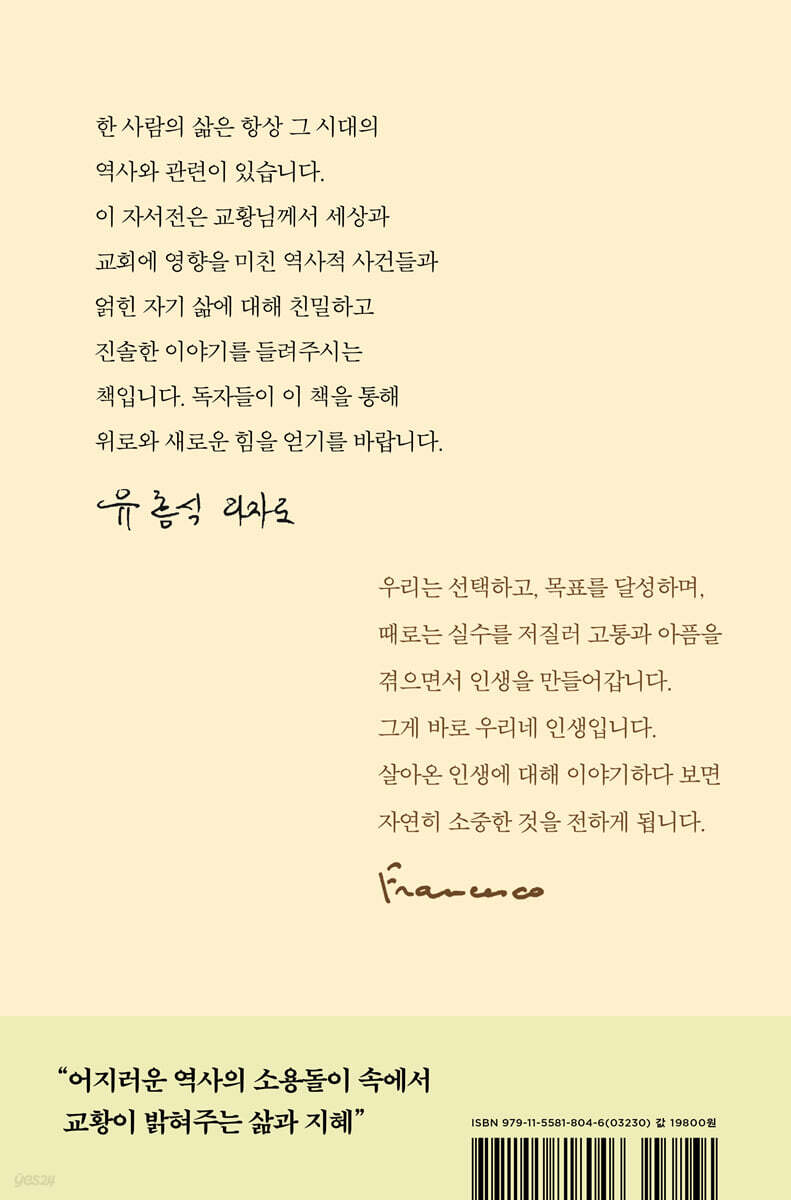 한 사람의 삶은 항상 그 시대의
역사와 관련이 있습니다.
이 자서전은 교황님께서 세상과
교회에 영향을 미친 역사적 사건들과
얽힌 자기 삶에 대해 친밀하고
진솔한 이야기를 들려주시는
책입니다. 독자들이 이 책을 통해
위로와 새로운 힘을 얻기를 바랍니다.
유흥식 라자로
우리는 선택하고, 목표를 달성하며,
때로는 실수를 저질러 고통과 아픔을
겪으면서 인생을 만들어갑니다.
그게 바로 우리네 인생입니다.
살아온 인생에 대해 이야기하다 보면
자연히 소중한 것을 전하게 됩니다.
Francesco
“어지러운 역사의 소용돌이 속에서
교황이 밝혀주는 삶과 지혜”
ISBN 979-11-5581-804-6(03230) 값 19800원
yes24